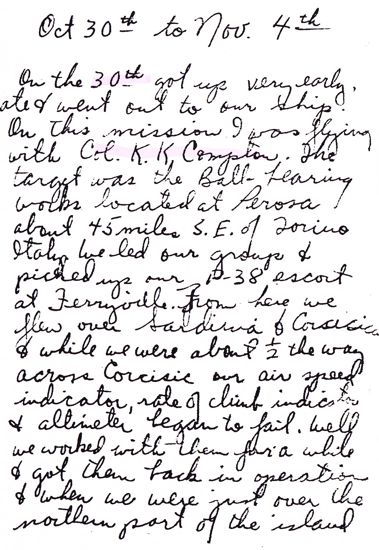 Oct 30th to Nov. 4th
On the 30th got up very early,
ate & went out to our ship.
On this mission I was flying
with Col. K. K. Compton. The
target was the Ball-bearing
works located at Perosa
about 45 miles S.E. of Torino
Italy. We led our group &
picked up our P-38 escort
at Ferryville. From here we
flew over Sardinia & Corsicia
& while we were about 1/2 the way
across Corcisic our air speed
indicator, rate of climb indicator
& altimeter began to fail. Well
we worked with them for a while
& got them back in operation
& when we were just over the
northern part of the island